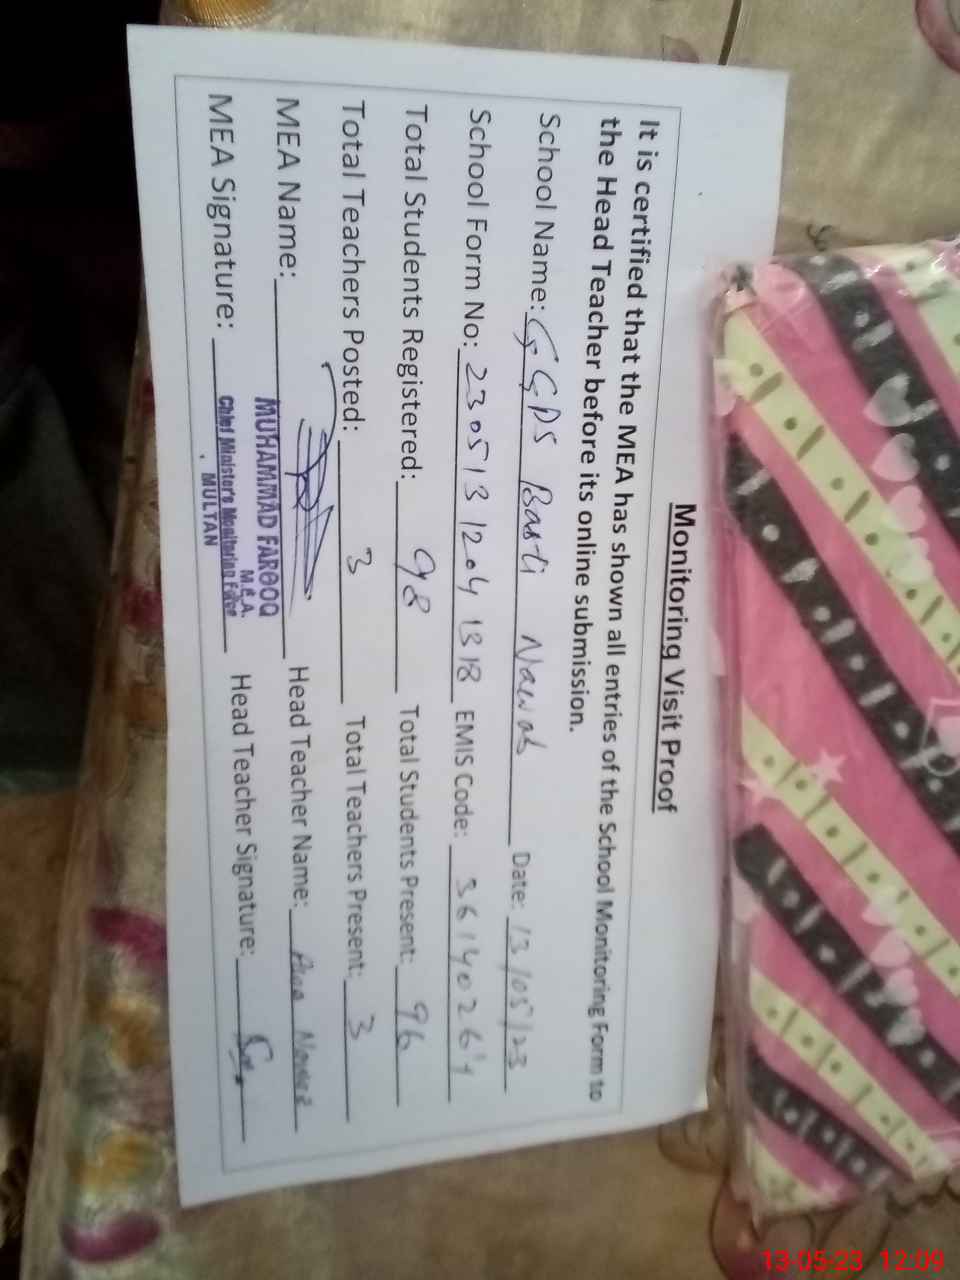 Monitoring Visit Proof
It is certified that the MEA has shown all entries of the School Monitoring Form to
the Head Teacher before its online submission.
School Name: GGPS Basti Nawab Date: 13/05/23
School Form No: 2305131204 1318 EMIS Code: 36140264
Total Students Registered: 98 Total Students Present: 96
Total Teachers Posted: 3 Total Teachers Present: 3
MEA Name: Head Teacher Name:
MUHAMMAD FAROOQ
M.E.A.
MEA Signature: Chief Minister's Monitoring Force Head Teacher Signature:
MULTAN
13-05-23 12:09